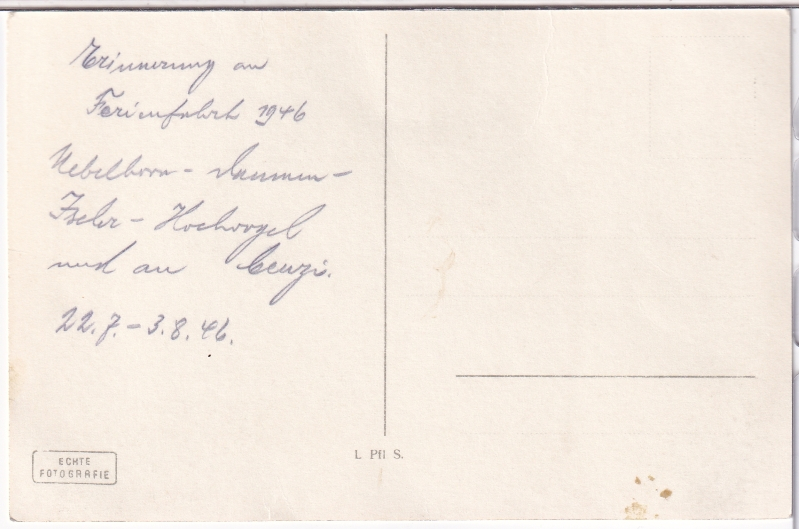 Erinnerung an
Ferienfahrt 1946
Nebelhorn - Daumen -
Iseler - Hochvogel
und an Cenzi.
22.7. - 3.8.46.
ECHTE
FOTOGRAFIE
L Pfl S.